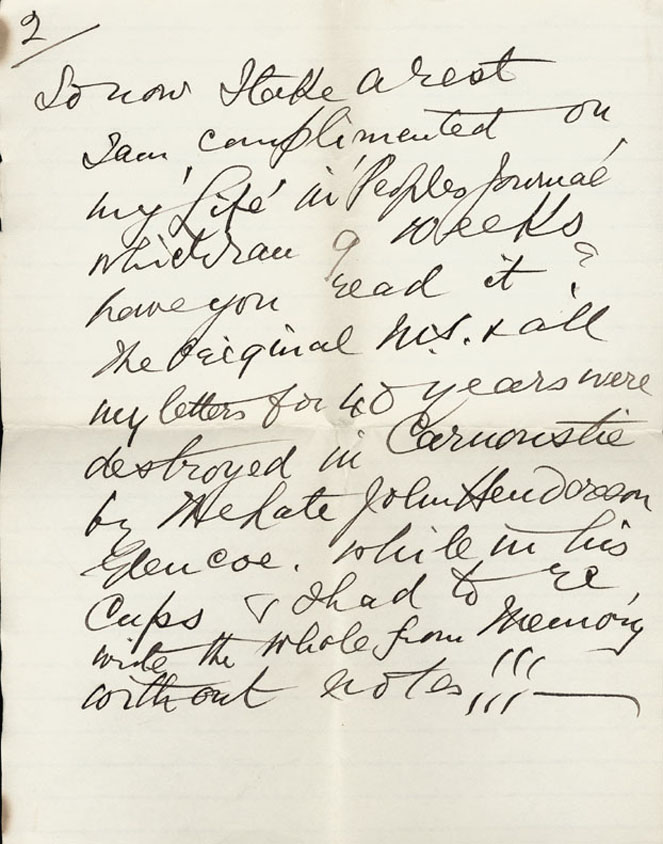 2/
So now I take a rest
I am complimented on
my 'Life' in 'Peoples Journal'
which ran 9 weeks
have you read it?
The Original M.S. & all
my letters for 40 years were
destroyed in Carnoustie
by the late John Henderson
Glencoe. while in his
Cups & I had to re
write the whole from Memory
without notes!!! —